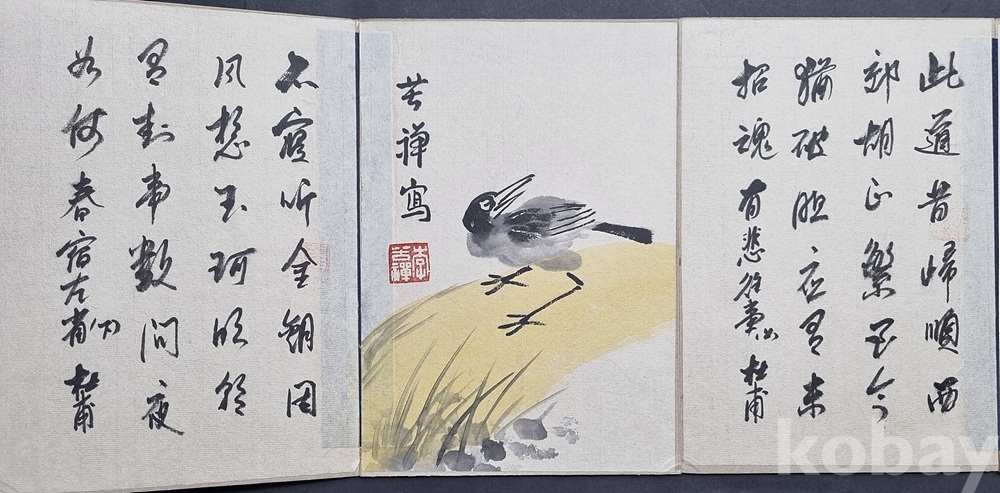 此道昔帰順西
郊胡正繁至今
猶破胆应有未
招魂 有悲往事 杜甫
苦禅寫
李苦禪
不寢听金鑰因
风想玉珂明朝
有封事數問夜
如何 春宿左省 杜甫
kobay